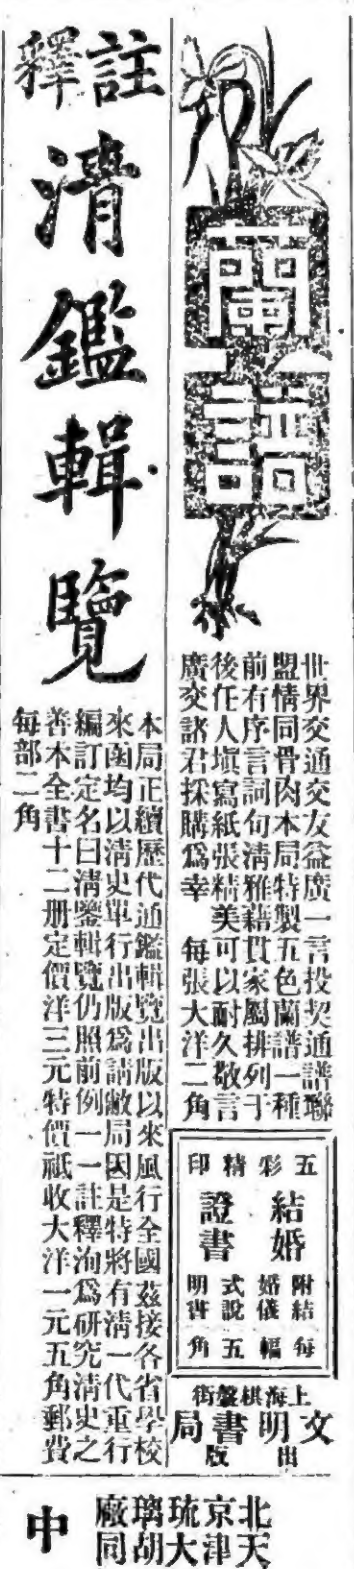 蘭譜
世界交通交友益廣一言投契通譜聯
盟情同骨肉本局特製五色蘭譜一種
前有序言詞句清雅藉貫家屬排列于
後任人填寫紙張精美可以耐久敬言
廣交諸君採購爲幸　每張大洋二角
五彩精印
結婚證書
附結婚儀式說明書
每幅五角
上海棋盤街
文明書局
出版
註釋
清鑑輯覽
本局正續歷代通鑑輯覽出版以來風行全國茲接各省學校
來函均以清史單行出版爲請敝局因是特將有清一代重行
編訂定名曰清鑒輯覽仍照前例一一註釋洵爲研究清史之
善本全書十二册定價洋三元特價祇收大洋一元五角郵費
每部二角
北京琉璃廠
天津大胡同
中